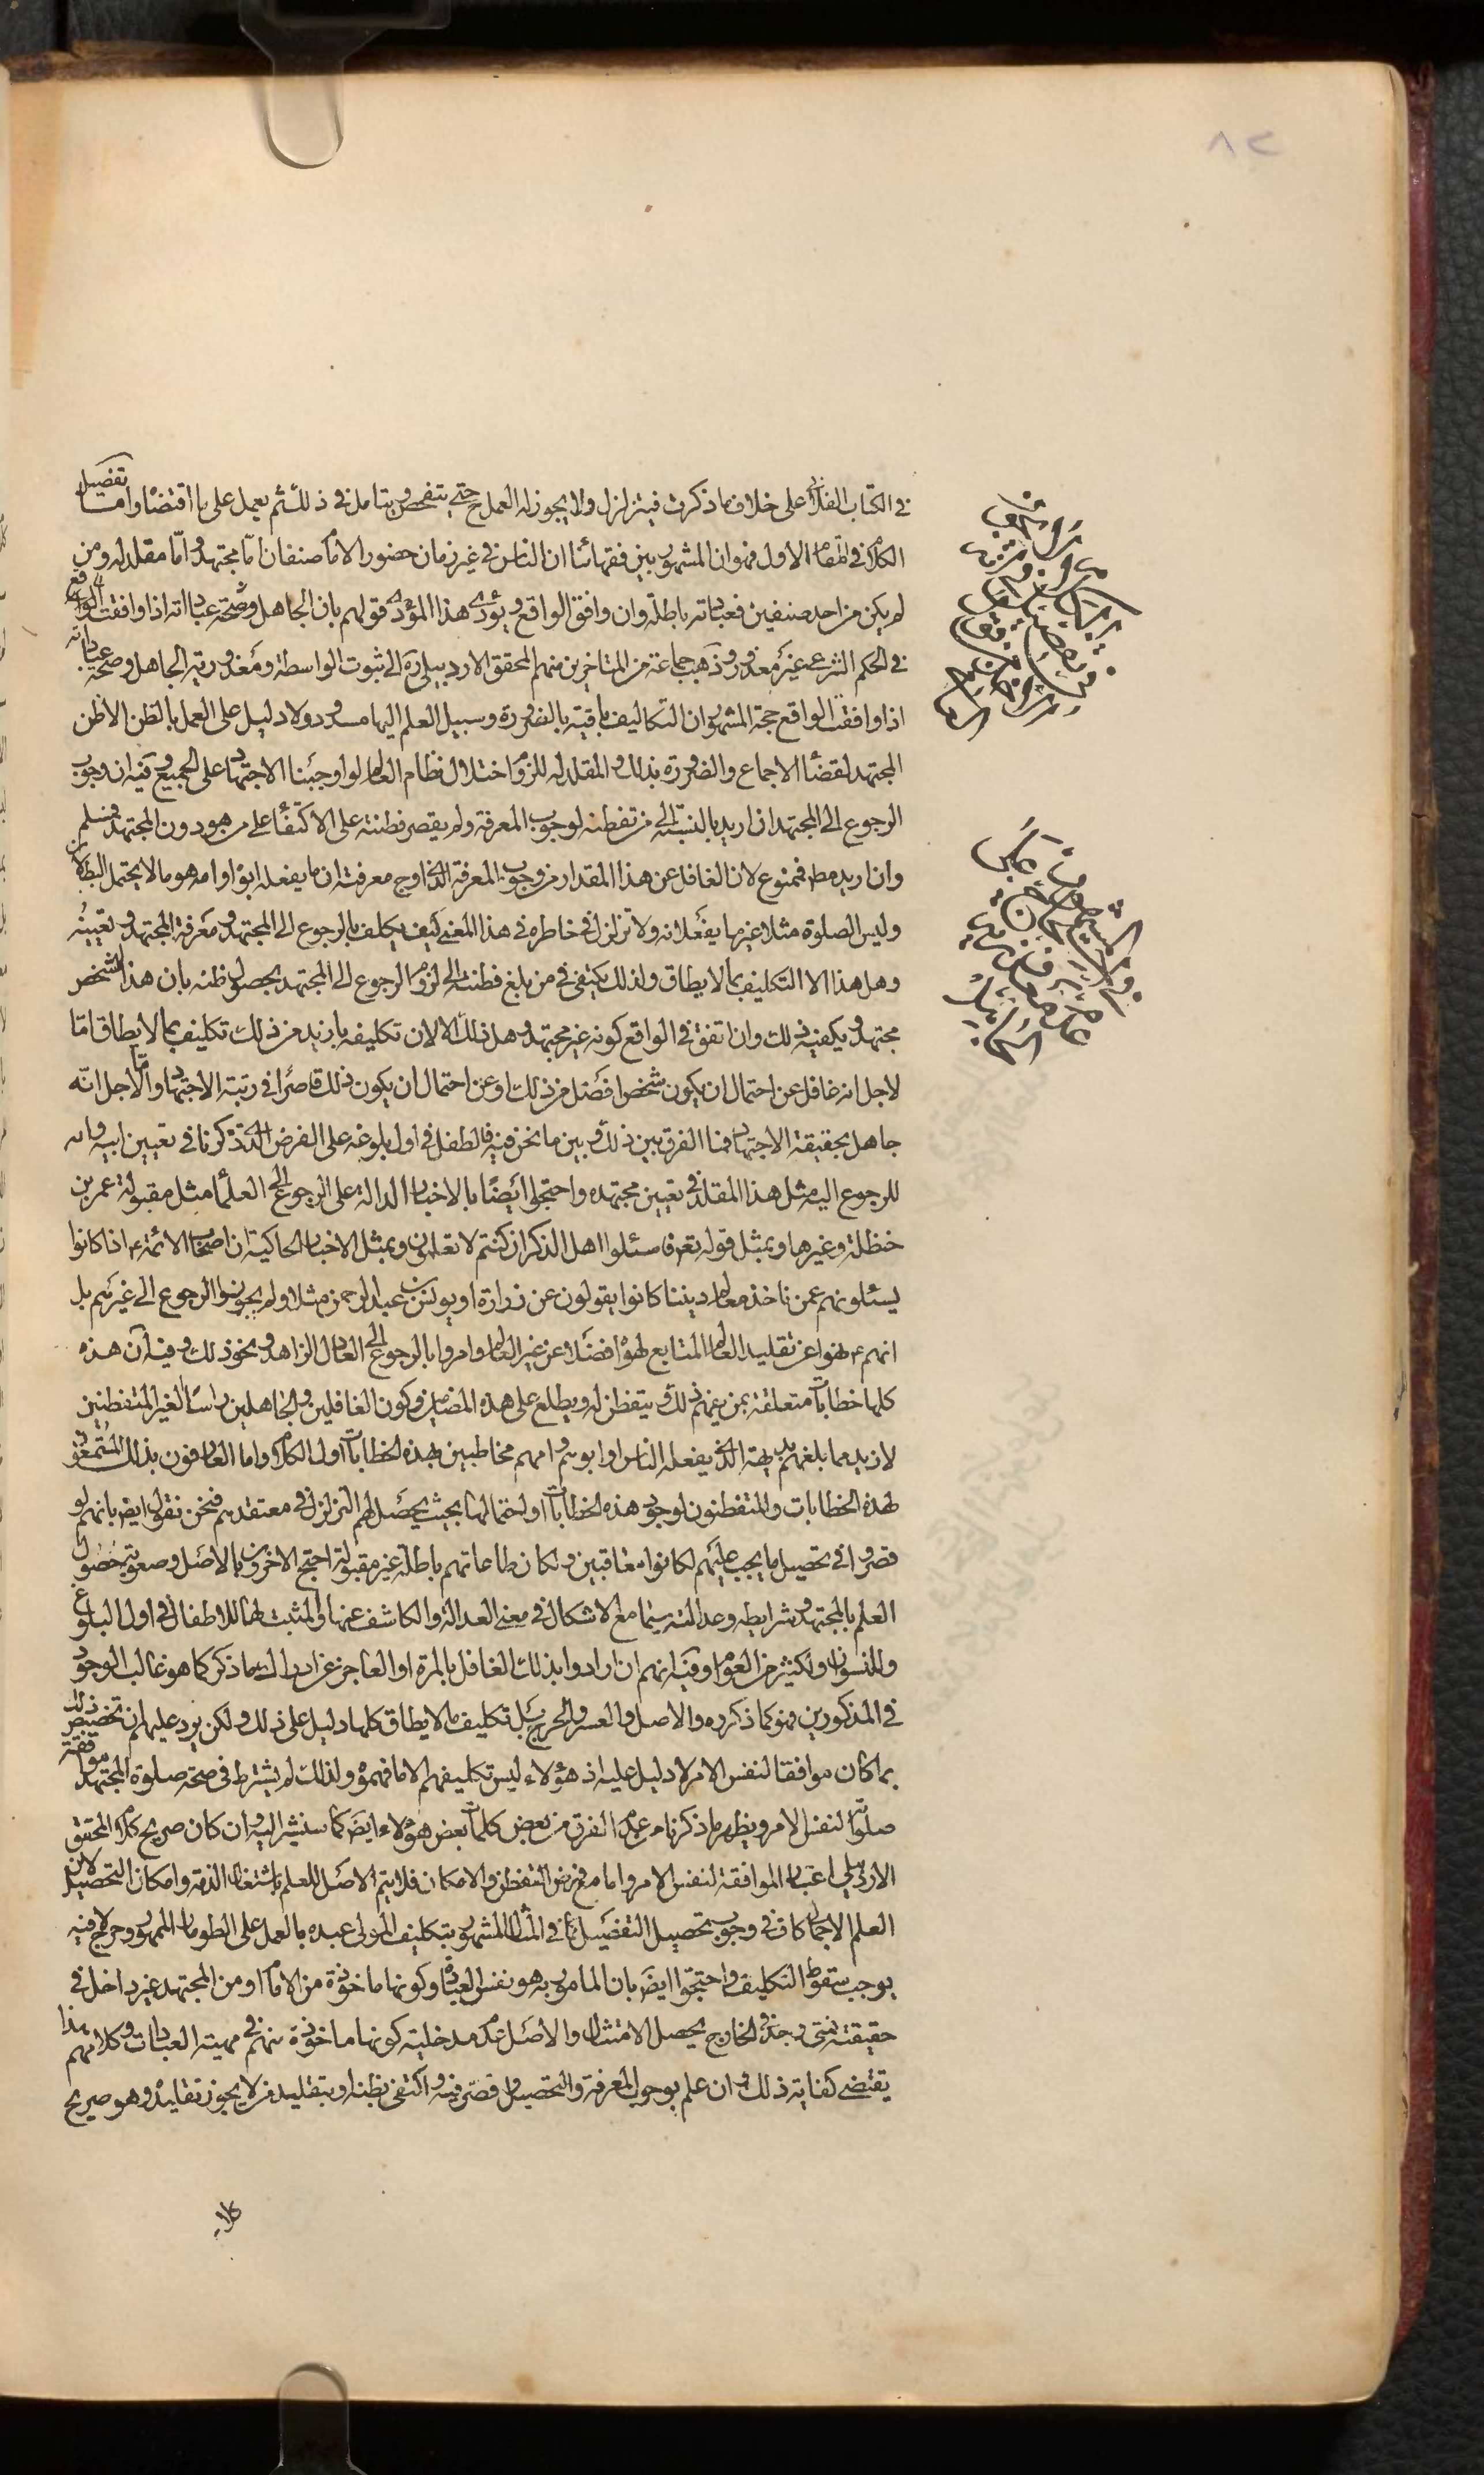 في الكتاب الفلاني على خلاف ما ذكرت فيتزلزل ولا يجوز له العمل ح حتى يتفحص ويتامل في ذلك ثم يعمل على ما اقتضاه واما تفصيل
الكلام في المقام الاول فهو ان المشهور بين فقهائنا ان الناس في غير زمان حضور الامام صنفان اما مجتهد واما مقلد له ومن
لم يكن من احد صنفين فعباداته باطلة وان وافق الواقع ويؤدى هذا المؤدى قولهم بان الجاهل وصحة عباداته اذا وافقت الواقع
في الحكم الشرعي غير معذور وذهب جماعة من المتاخرين منهم المحقق الاردبيلي ره الى ثبوت الواسطة ومعذورية الجاهل وصحة عباداته
اذا وافقت الواقع حجة المشهور ان التكاليف باقية بالضرورة وسبيل العلم اليها مسدود ولا دليل على العمل بالظن الا ظن
المجتهد لقضاء الاجماع والضرورة بذلك والمقلد له للزوم اختلال نظام العالم لو اوجبنا الاجتهاد على الجميع وفيه ان وجوب
الرجوع الى المجتهد ان اريد بالنسبة الى من تفطن لوجوب المعرفة ولم يقصر فطنته على الاكتفاء على من هو دون المجتهد فمسلم
وان اريد مط فممنوع لان الغافل عن هذا المقدار من وجوب المعرفة الذي اوج معرفته ان ما يفعله ابواه او امه هو ما لا يحتمل البطلان
وليس الصلوة مثلا غير ما يفعلانه ولا تزلزل في خاطره في هذا المعنى كيف يكلف بالرجوع الى المجتهد ومعرفة المجتهد وتعيينه
وهل هذا الا التكليف بما لا يطاق ولذلك يكتفى في من بلغ فطنته الى لزوم الرجوع الى المجتهد بحصول ظنه بان هذا الشخص
مجتهد ويكفيه ذلك وان اتفق في الواقع كونه غير مجتهد وهل ذلك الا لان تكليفه بازيد من ذلك تكليف بما لا يطاق اما
لاجل انه غافل عن احتمال ان يكون شخص افضل من ذلك او عن احتمال ان يكون ذلك قاصرا في رتبة الاجتهاد واما لاجل انه
جاهل بحقيقة الاجتهاد فما الفرق بين ذلك وبين ما نحن فيه فالطفل في اول بلوغه على الفرض الذي ذكرنا في تعيين ابيه وامه
للرجوع اليه مثل هذا المقلد في تعيين مجتهده واحتجوا ايضا بالاخبار الدالة على الرجوع الى العلماء مثل مقبولة عمر بن
حنظلة وغيرها وبمثل قوله تعه فاسئلوا اهل الذكر ان كنتم لا تعلمون وبمثل الاخبار الحاكية ان اصحاب الائمة ع اذا كانوا
يسئلونهم عمن ناخذ معالم ديننا كانوا يقولون عن زرارة او يونس بن عبد الرحمن مثلا ولم يجوزوا الرجوع الى غيرهم بل
انهم ع نهوا عن تقليد العالم المتابع لهواه فضلا عن غير العالم وامروا بالرجوع الى العادل الزاهد ونحو ذلك وفيه ان هذه
كلها خطابات متعلقة بمن يفهم ذلك ويتفطن له ويطلع على هذه المضامين وكون الغافلين والجاهلين راسا الغير المتفطنين
لازيد مما بلغهم بديهة الذي يفعله الناس او ابويهم او امهم مخاطبين بهذه الخطابات اول الكلام واما العارفون بذلك المستمعون
لهذه الخطابات والمتفطنون لوجود هذه الخطابات او احتمالها بحيث يحصل لهم التزلزل في معتقدهم فنحن نقول ايض بانهم لو
قصروا في تحصيل ما يجب عليهم لكانوا معاقبين ولكان طاعاتهم باطلة غير مقبولة احتج الاخرون بالاصل وصعوبة حصول
العلم بالمجتهد وشرايطه وعدالته سيما مع الاشكال في معنى العدالة والكاشف عنها والمثبت لها للاطفال في اول البلوغ
وللنسوان ولكثير من العوام وفيه انهم ان ارادوا بذلك الغافل بالمرة او العاجز عن ادراك ما ذكر كما هو غالب الوجود
في المذكورين فهو كما ذكروه والاصل والعسر والحرج بل تكليف ما لا يطاق كلها دليل على ذلك ولكن يرد عليهم ان تخصيص ذلك
بما كان موافقا لنفس الامر لا دليل عليه اذ هؤلاء ليس تكليفهم الا ما فهموه ولذلك لم يشترط في صحة صلوة المجتهد موافقة
صلوته لنفس الامر ويظهر ما ذكرنا من عدم الفرق من بعض كلمات بعض هؤلاء ايض كما سنشير اليه وان كان صريح كلام المحقق
الاردبيلي اعتبار الموافقة لنفس الامر واما مع فرض التفطن والامكان فلا يتم الاصل للعلم باشتغال الذمة وامكان التحصيل لان
العلم الاجمالي كاف في وجوب تحصيل التفصيل كما في المثال المشهور بتكليف المولى عبده بالعمل على الطومار الممهور وحرج لا فيه
يوجب سقوط التكليف واحتجوا ايض بان المامور به هو نفس العبادة وكونها ماخوذة من الامام او من المجتهد غير داخل في
حقيقته فمتى وجد في الخارج يحصل الامتثال والاصل عدم مدخلية كونها ماخوذة منهم في مهية العبادات وكلامهم هذا
يقتضي كفاية ذلك وان علم بوجوب المعرفة والتحصيل وقصر فيه واكتفى بظنه او بتقليد من لا يجوز تقليده وهو صريح
كلام